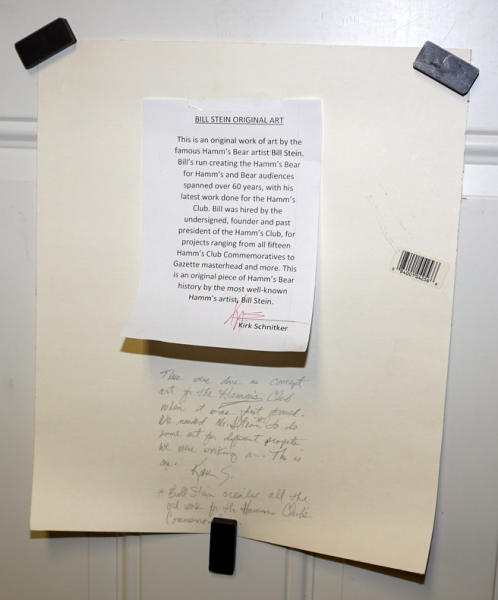 BILL STEIN ORIGINAL ART
This is an original work of art by the
famous Hamm's Bear artist Bill Stein.
Bill's run creating the Hamm's Bear
for Hamm's and Bear audiences
spanned over 60 years, with his
latest work done for the Hamm's
Club. Bill was hired by the
undersigned, founder and past
president of the Hamm's Club, for
projects ranging from all fifteen
Hamm's Club Commemoratives to
Gazette masterhead and more. This
is an original piece of Hamm's Bear
history by the most well-known
Hamm's artist, Bill Stein.
Kirk Schnitker
These were done as concept
art for the Hamm's Club
when it was first formed.
We needed Mr. Stein to do
some art for different projects
we were working on. This is
one. Kirk S.
* Bill Stein created all the
art work for the Hamms Club's